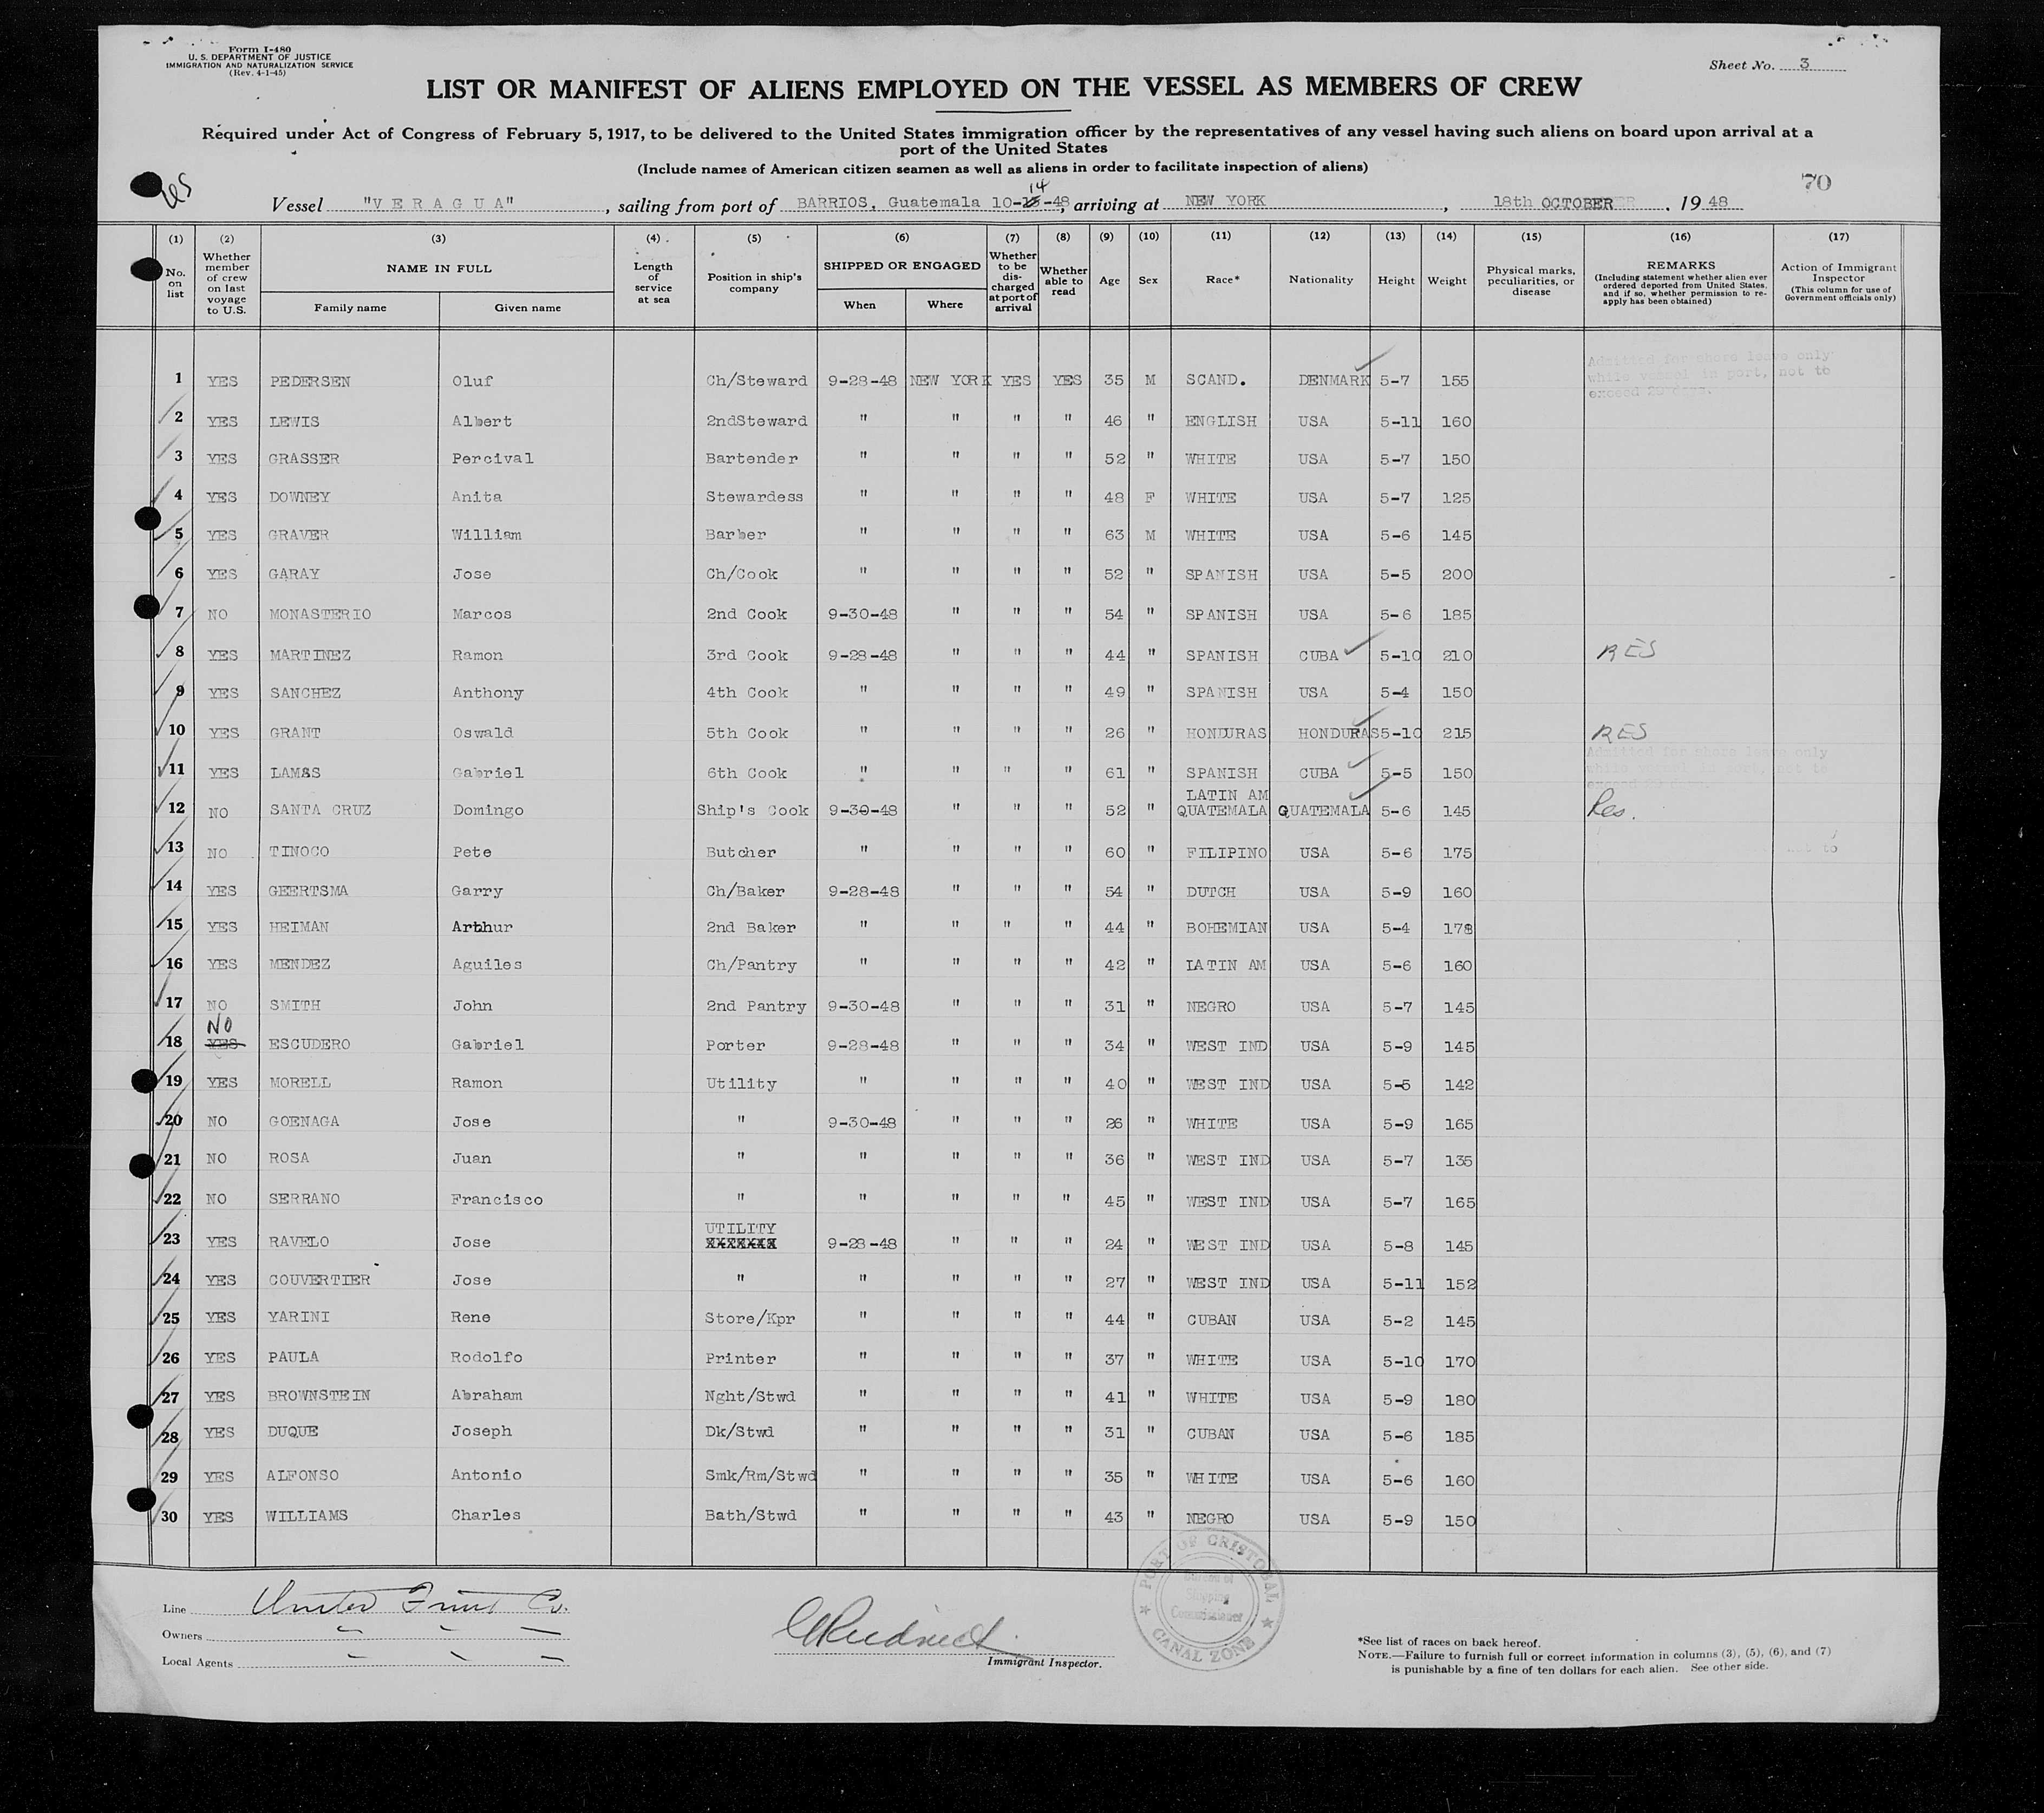 Form I-480
U. S. DEPARTMENT OF JUSTICE
IMMIGRATION AND NATURALIZATION SERVICE
(Rev. 4-1-45)
Sheet No. 3
LIST OR MANIFEST OF ALIENS EMPLOYED ON THE VESSEL AS MEMBERS OF CREW
Required under Act of Congress of February 5, 1917, to be delivered to the United States immigration officer by the representatives of any vessel having such aliens on board upon arrival at a
port of the United States
(Include names of American citizen seamen as well as aliens in order to facilitate inspection of aliens)
70
14
Vessel "VERAGUA", sailing from port of BARRIOS, Guatemala 10- -48, arriving at NEW YORK, 18th OCTOBER, 1948
(1) (2) (3) (4) (5) (6) (7) (8) (9) (10) (11) (12) (13) (14) (15) (16) (17)
No. on list | Whether member of crew on last voyage to U.S. | NAME IN FULL | Family name | Given name | Length of service at sea | Position in ship's company | SHIPPED OR ENGAGED | When | Where | Whether to be discharged at port of arrival | Whether able to read | Age | Sex | Race* | Nationality | Height | Weight | Physical marks, peculiarities, or disease | REMARKS (Including statement whether alien ever ordered deported from United States, and if so, whether permission to reapply has been obtained) | Action of Immigrant Inspector (This column for use of Government officials only)
Admitted for shore leave only
while vessel in port, not to
exceed 29 days.
1 YES PEDERSEN Oluf Ch/Steward 9-28-48 NEW YORK YES YES 35 M SCAND. DENMARK 5-7 155
2 YES LEWIS Albert 2ndSteward " " " " 46 " ENGLISH USA 5-11 160
3 YES GRASSER Percival Bartender " " " " 52 " WHITE USA 5-7 150
4 YES DOWNEY Anita Stewardess " " " " 48 F WHITE USA 5-7 125
5 YES GRAVER William Barber " " " " 63 M WHITE USA 5-6 145
6 YES GARAY Jose Ch/Cook " " " " 52 " SPANISH USA 5-5 200
7 NO MONASTERIO Marcos 2nd Cook 9-30-48 " " " 54 " SPANISH USA 5-6 185
8 YES MARTINEZ Ramon 3rd Cook 9-28-48 " " " 44 " SPANISH CUBA 5-10 210 RES
9 YES SANCHEZ Anthony 4th Cook " " " " 49 " SPANISH USA 5-4 150
10 YES GRANT Oswald 5th Cook " " " " 26 " HONDURAS HONDURAS 5-10 215 RES
Admitted for shore leave only
11 YES LAMAS Gabriel 6th Cook " " " " 61 " SPANISH CUBA 5-5 150
while vessel in port, not to
LATIN AM
12 NO SANTA CRUZ Domingo Ship's Cook 9-30-48 " " " 52 " QUATEMALA QUATEMALA 5-6 145 Res.
13 NO TINOCO Pete Butcher " " " " 60 " FILIPINO USA 5-6 175 not to
14 YES GEERTSMA Garry Ch/Baker 9-28-48 " " " 54 " DUTCH USA 5-9 160
15 YES HEIMAN Arthur 2nd Baker " " " " 44 " BOHEMIAN USA 5-4 178
16 YES MENDEZ Aguiles Ch/Pantry " " " " 42 " LATIN AM USA 5-6 160
17 NO SMITH John 2nd Pantry 9-30-48 " " " 31 " NEGRO USA 5-7 145
NO
18 YES ESCUDERO Gabriel Porter 9-28-48 " " " 34 " WEST IND USA 5-9 145
19 YES MORELL Ramon Utility " " " " 40 " WEST IND USA 5-5 142
20 NO GOENAGA Jose " 9-30-48 " " " 26 " WHITE USA 5-9 165
21 NO ROSA Juan " " " " " 36 " WEST IND USA 5-7 135
22 NO SERRANO Francisco " " " " " 45 " WEST IND USA 5-7 165
UTILITY
23 YES RAVELO Jose 9-28-48 " " " 24 " WEST IND USA 5-8 145
24 YES COUVERTIER Jose " " " " " 27 " WEST IND USA 5-11 152
25 YES YARINI Rene Store/Kpr " " " " 44 " CUBAN USA 5-2 145
26 YES PAULA Rodolfo Printer " " " " 37 " WHITE USA 5-10 170
27 YES BROWNSTEIN Abraham Nght/Stwd " " " " 41 " WHITE USA 5-9 180
28 YES DUQUE Joseph Dk/Stwd " " " " 31 " CUBAN USA 5-6 185
29 YES ALFONSO Antonio Smk/Rm/Stwd " " " " 35 " WHITE USA 5-6 160
30 YES WILLIAMS Charles Bath/Stwd " " " " 43 " NEGRO USA 5-9 150
PORT OF CRISTOBAL
Bureau of
Shipping
Commissioner
CANAL ZONE
Line United Fruit Co.
Owners " " "
Local Agents " " "
Immigrant Inspector.
*See list of races on back hereof.
NOTE.—Failure to furnish full or correct information in columns (3), (5), (6), and (7)
is punishable by a fine of ten dollars for each alien. See other side.